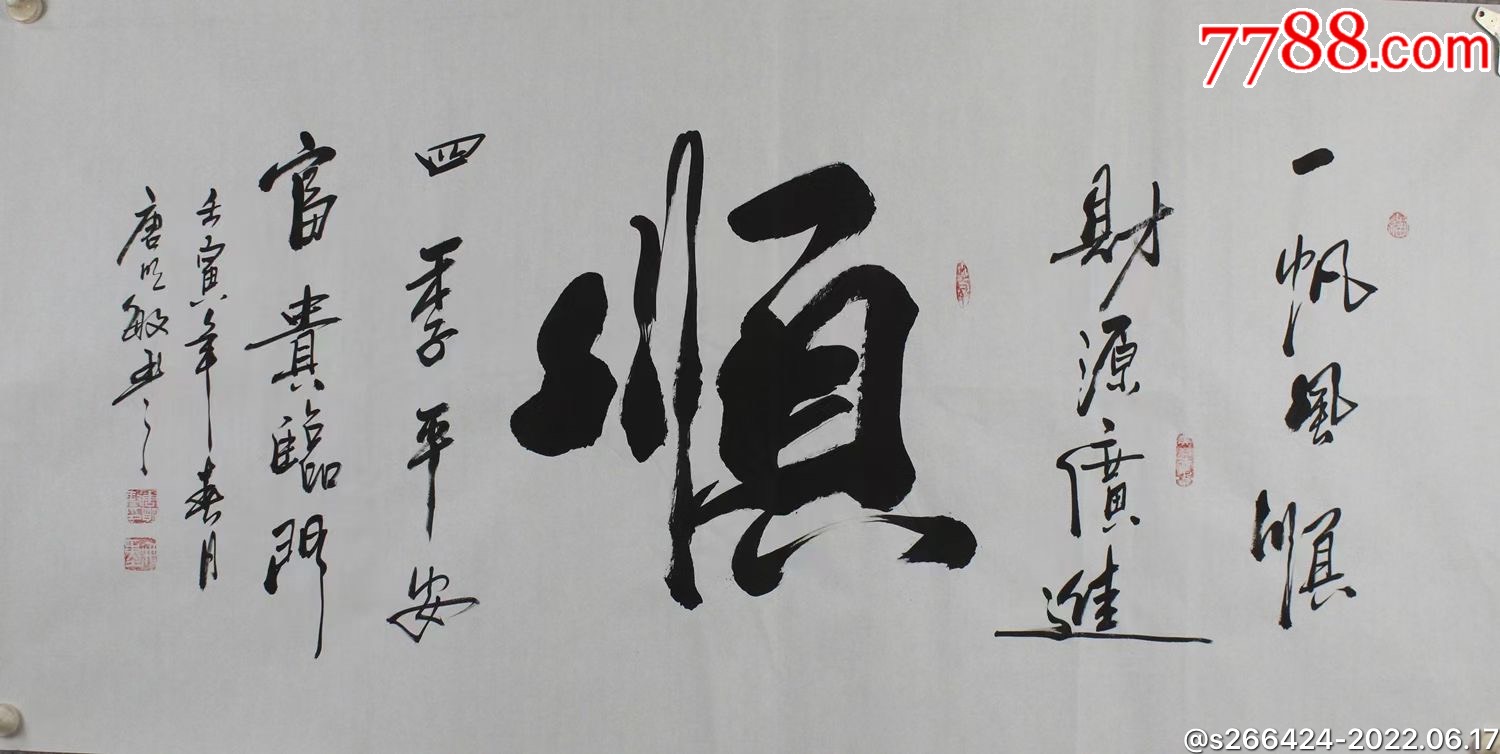 7788.com
一帆風順
財源廣進
順
四季平安
富貴臨門
壬寅年春月
唐明敏書之
@s266424-2022.06.17